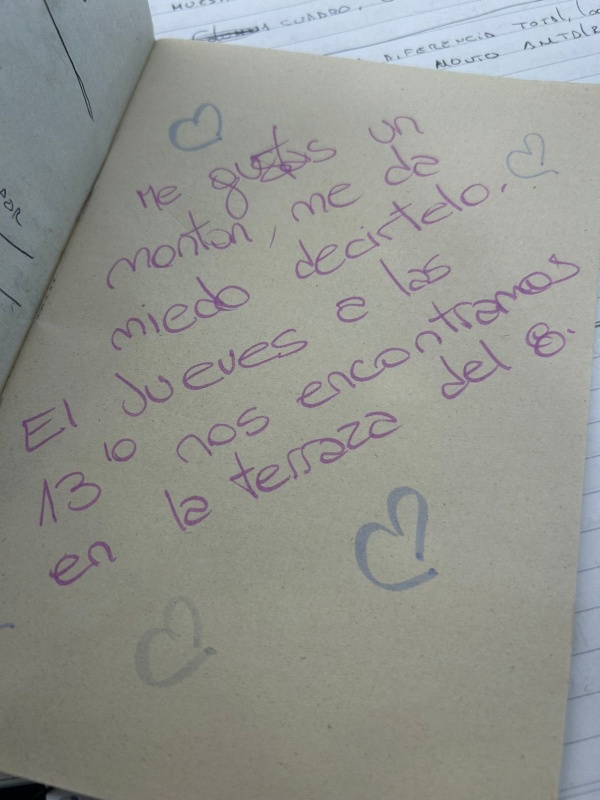 CUADRO,
DIFERENCIA TOTAL,
MONTO
Me gustas un
monton, me da
miedo decirtelo.
El Jueves a las
13¹⁰ nos encontramos
en la terraza del 8.